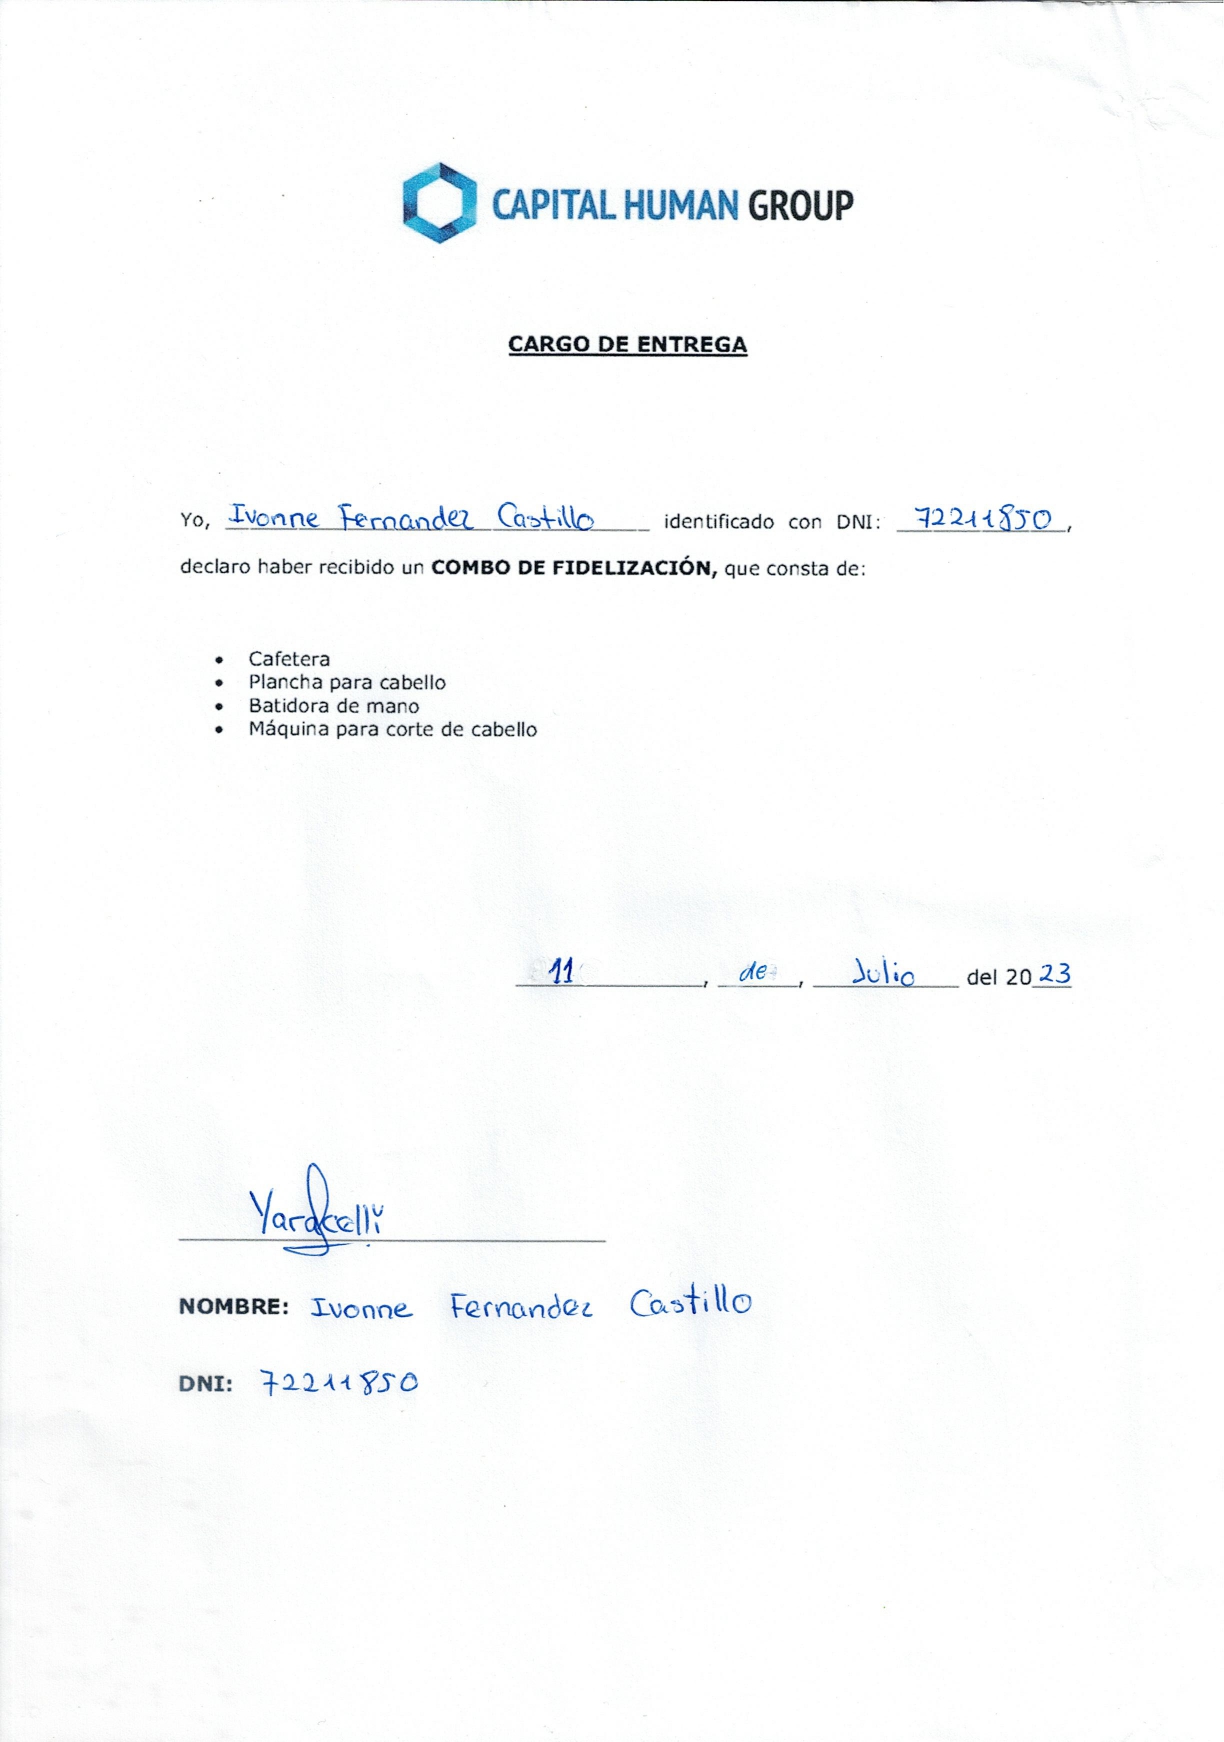 CAPITAL HUMAN GROUP
CARGO DE ENTREGA
Yo, Ivonne Fernandez Castillo identificado con DNI: 72211850,
declaro haber recibido un COMBO DE FIDELIZACIÓN, que consta de:
• Cafetera
• Plancha para cabello
• Batidora de mano
• Máquina para corte de cabello
11, de, Julio del 2023
Yaracelli
NOMBRE: Ivonne Fernandez Castillo
DNI: 72211850